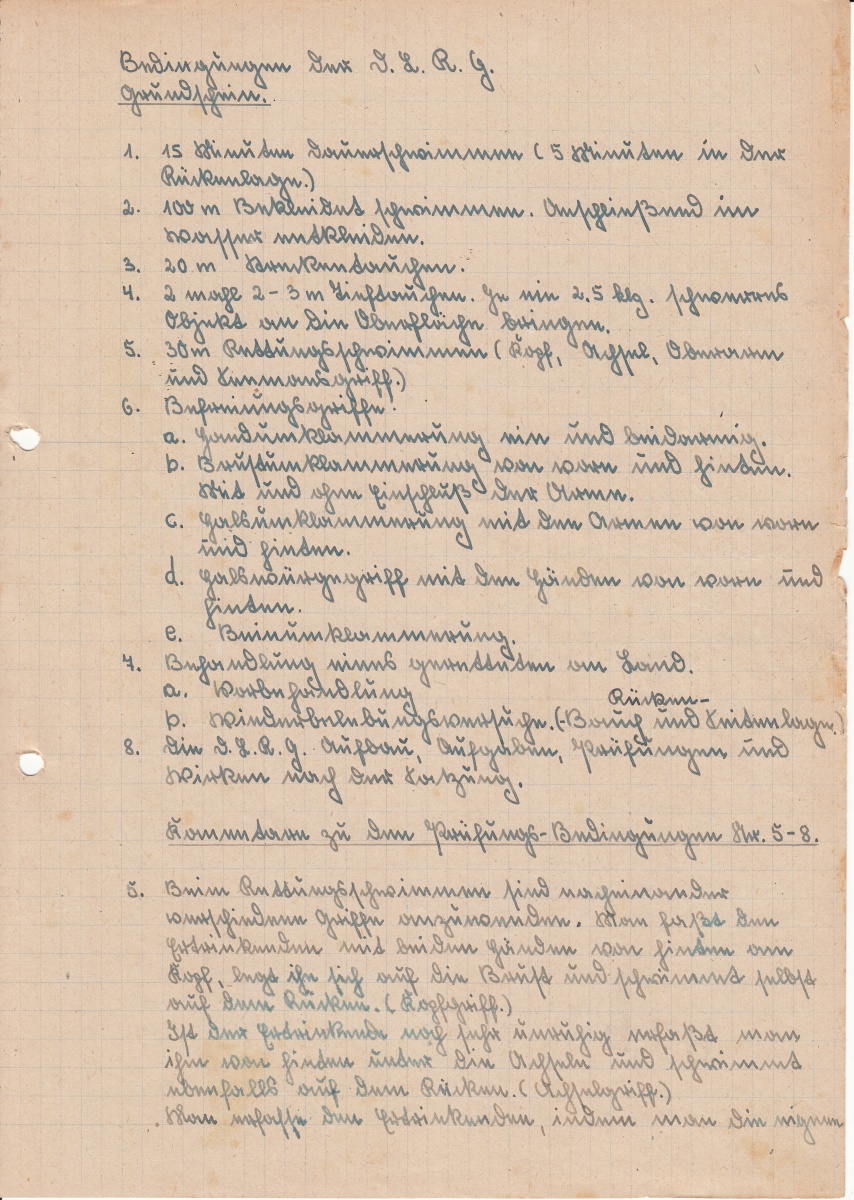 Bedingungen der D. L. R. G.
Grundschein.
1. 15 Minuten Dauerschwimmen ( 5 Minuten in der
Rückenlage.)
2. 100 m Bekleidet schwimmen. Anschließend im
Wasser entkleiden.
3. 20 m Streckentauchen.
4. 2 mahl 2-3 m Tieftauchen. Je ein 2.5 klg. schwerres
Objekt an die Oberfläche bringen.
5. 30 m Rettungsschwimmen ( Kopf, Achsel, Oberarm
und Seemansgriff.)
6. Befreiungsgriffe.
a. Handumklammerung ein und beidarmig.
b. Brustumklammerung von vorn und hinten.
Mit und ohne Einschluß der Arme.
c. Halsumklammerung mit den Armen von vorn
und hinten.
d. Halswürgegriff mit den Händen von vorn und
hinten.
e. Beinumklammerung.
7. Behandlung eines geretteten an Land.
a. Vorbehandlung
Rücken-
b. Wiederbelebungsversuche. (-Bauch und Seitenlage.)
8. Die D. L. R. G. Aufbau, Aufgaben, Prüfungen und
Wirken nach der Satzung.
Komentare zu den Prüfungs-Bedingungen Nr. 5-8.
5. Beim Rettungsschwimmen sind nacheinander
verschiedene Griffe anzuwenden. Man faßt den
Ertrinkenden mit beiden Händen von hinten am
Kopf, legt ihn sich auf die Brust und schwimmt selbst
auf dem Rücken. ( Kopfgriff.)
Ist der Ertrinkende noch sehr unruhig erfaßt man
ihn von hinten unter die Achseln und schwimmt
ebenfalls auf dem Rücken. ( Achselgriff.)
Man erfasse den Ertrinkenden, indem man die eigene